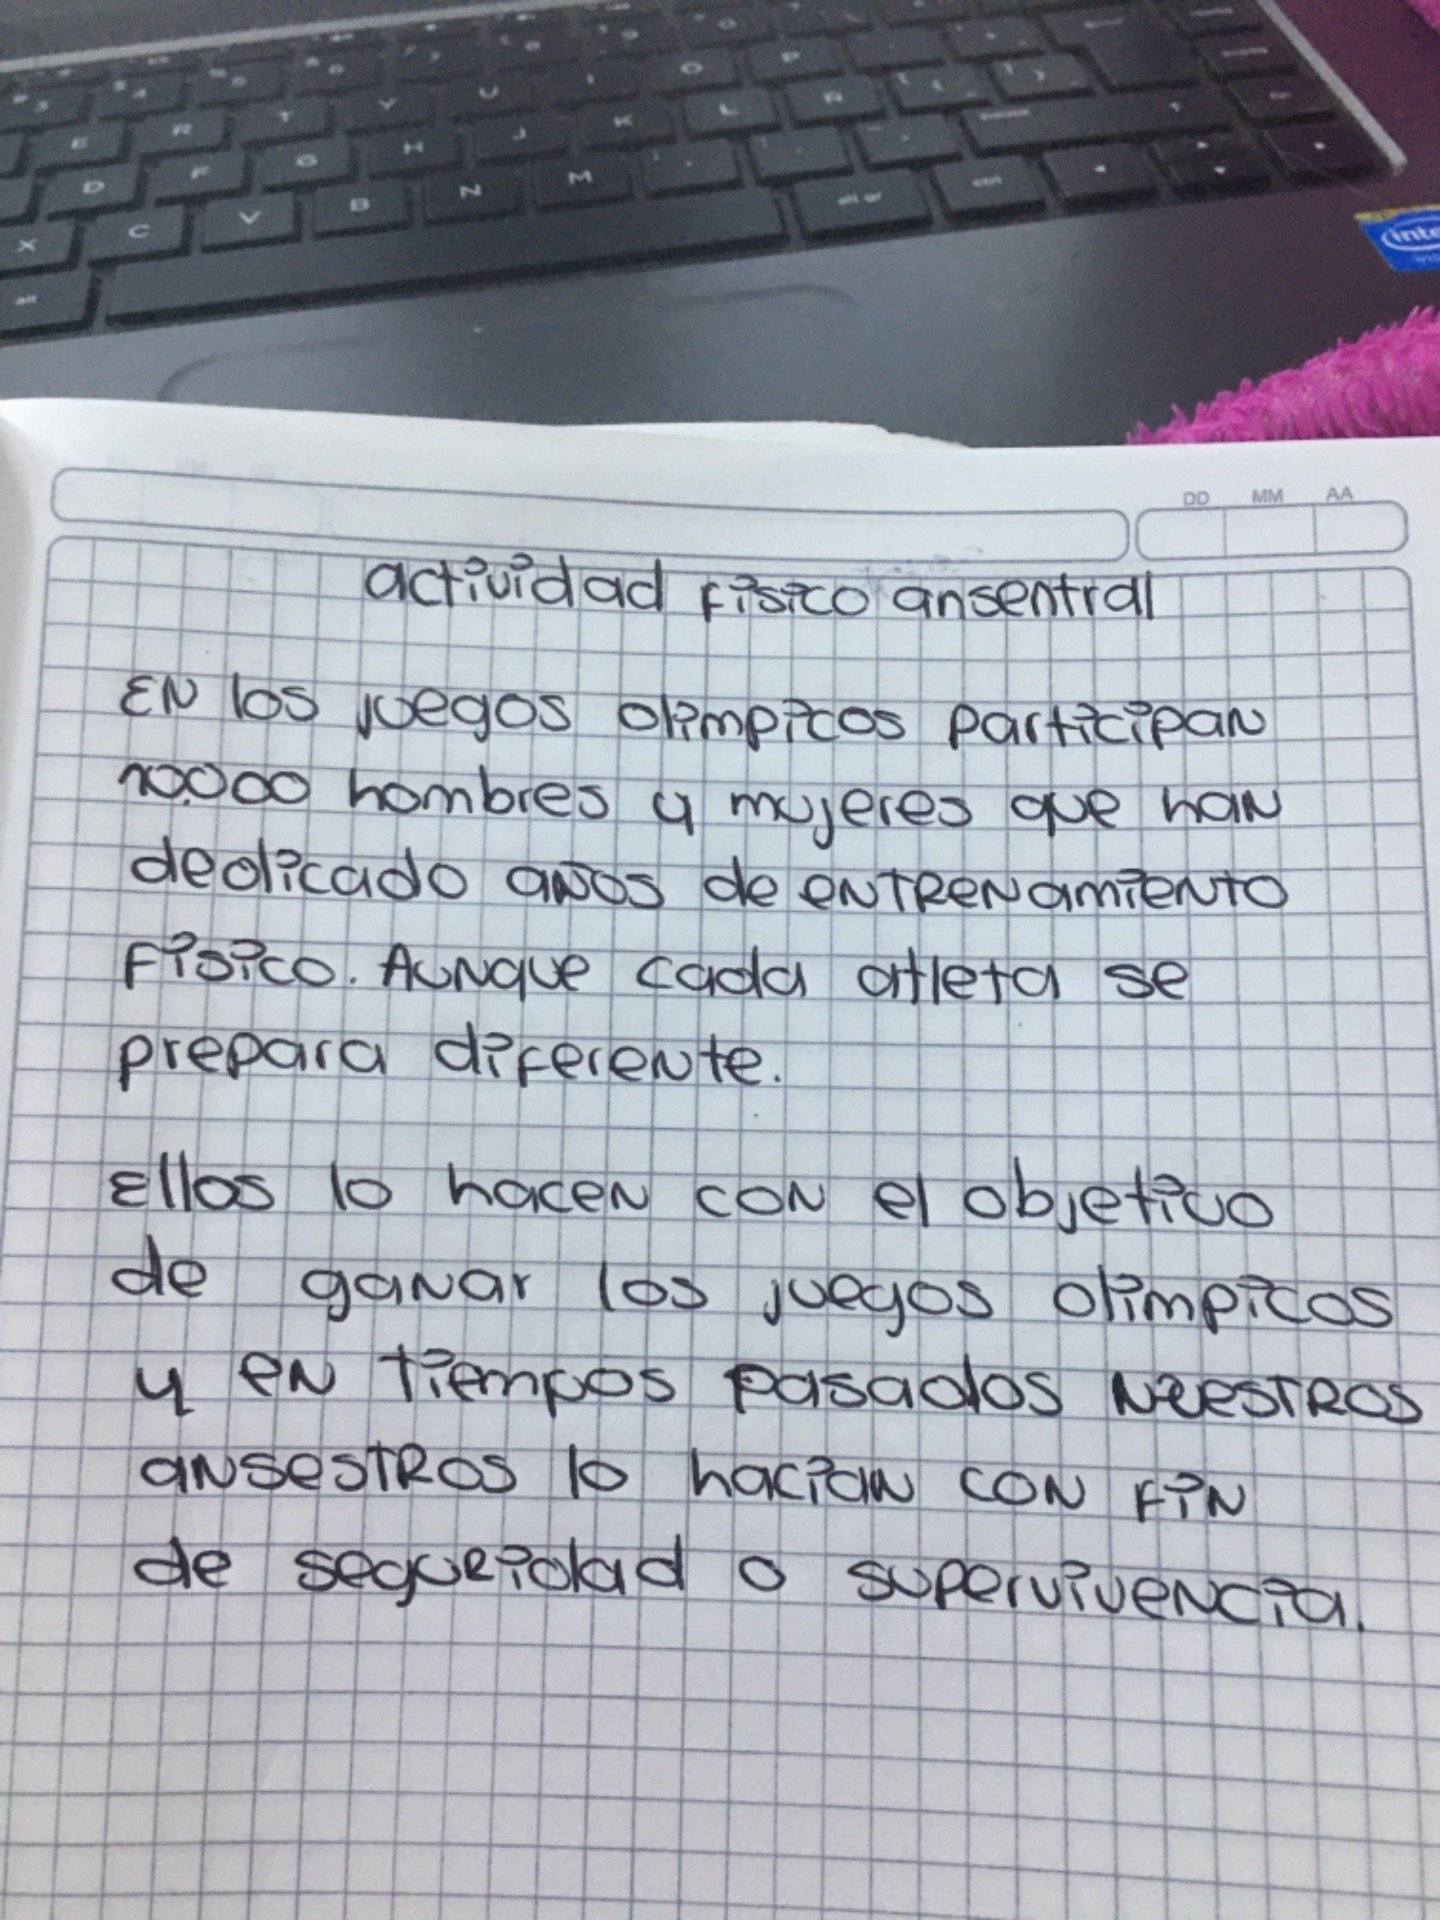 3 4 5 6 7 8 9
E R T Y U I O P
D F G H J K L Ñ
X C V B N M
alt
alt gr ctrl
inte
DD MM AA
actividad fisico ansentral
EN los juegos olimpicos participan
10.000 hombres y mujeres que han
dedicado años de entrenamiento
Fisico. Aunque cada atleta se
prepara diferente.
Ellos lo hacen con el objetivo
de ganar los juegos olimpicos
y en tiempos pasados nuestros
ansestros lo hacian con fin
de seguridad o supervivencia.